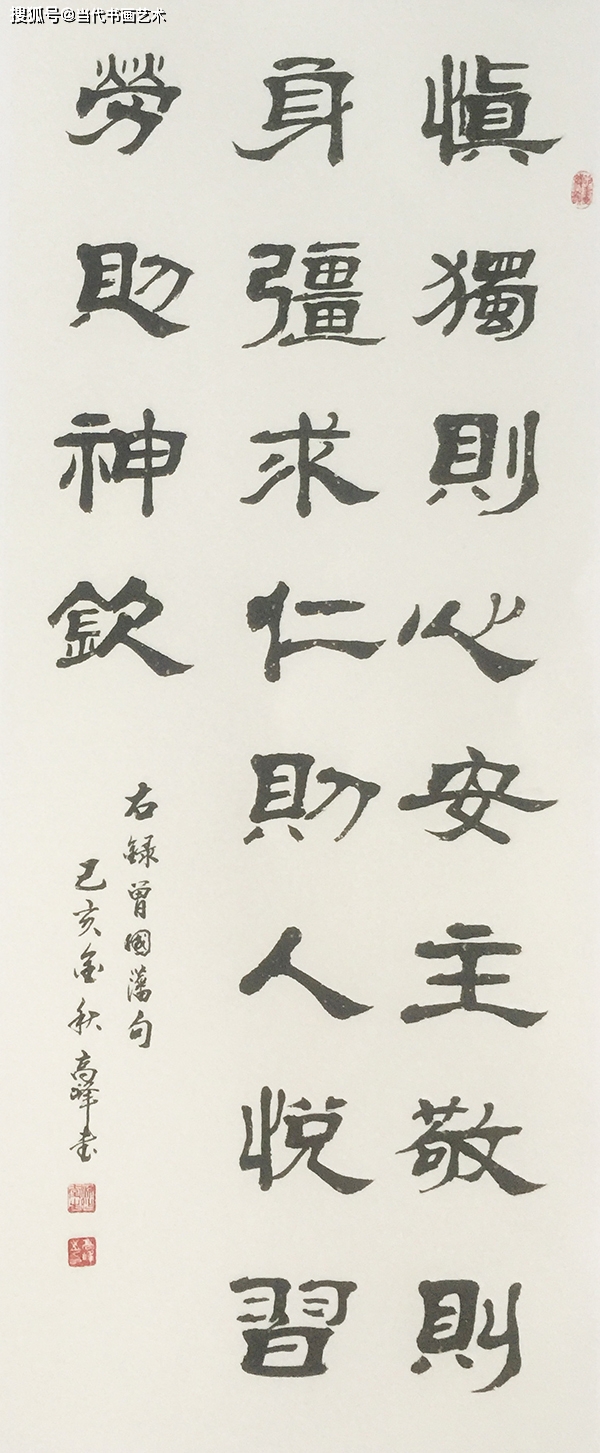 搜狐号@当代书画艺术
慎獨則心安主敬則
身彊求仁則人悅習
勞則神欽
右録曾國藩句
己亥金秋高峰書